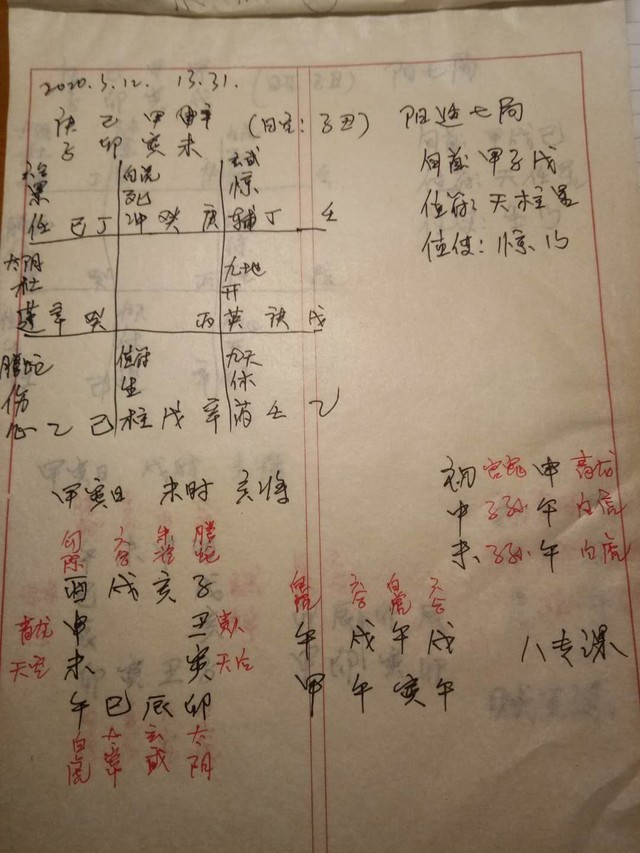 2020.3.12. 13.31.
庚 己 甲 辛 (日空:子丑) 阳遁七局
子 卯 寅 未 旬首 甲子戊
值符:天柱星
值使:惊门
六合 白虎 玄武
景 死 惊
任 己 丁 冲 癸 庚 辅 丁 壬
太阴 九地
杜 开
蓬 辛 癸 丙 英 庚 戊
腾蛇 值符 九天
伤 生 休
心 乙 己 柱 戊 辛 芮 壬 乙
甲寅日 未时 亥将
初 官鬼 申 青龙
中 子孙 午 白虎
末 子孙 午 白虎
勾陈 六合 朱雀 腾蛇
酉 戌 亥 子
青龙 申 丑 贵人
天空 未 寅 天后
午 巳 辰 卯
白虎 太常 玄武 太阴
白虎 六合 白虎 六合
午 戌 午 戌
甲 午 寅 午
八专课